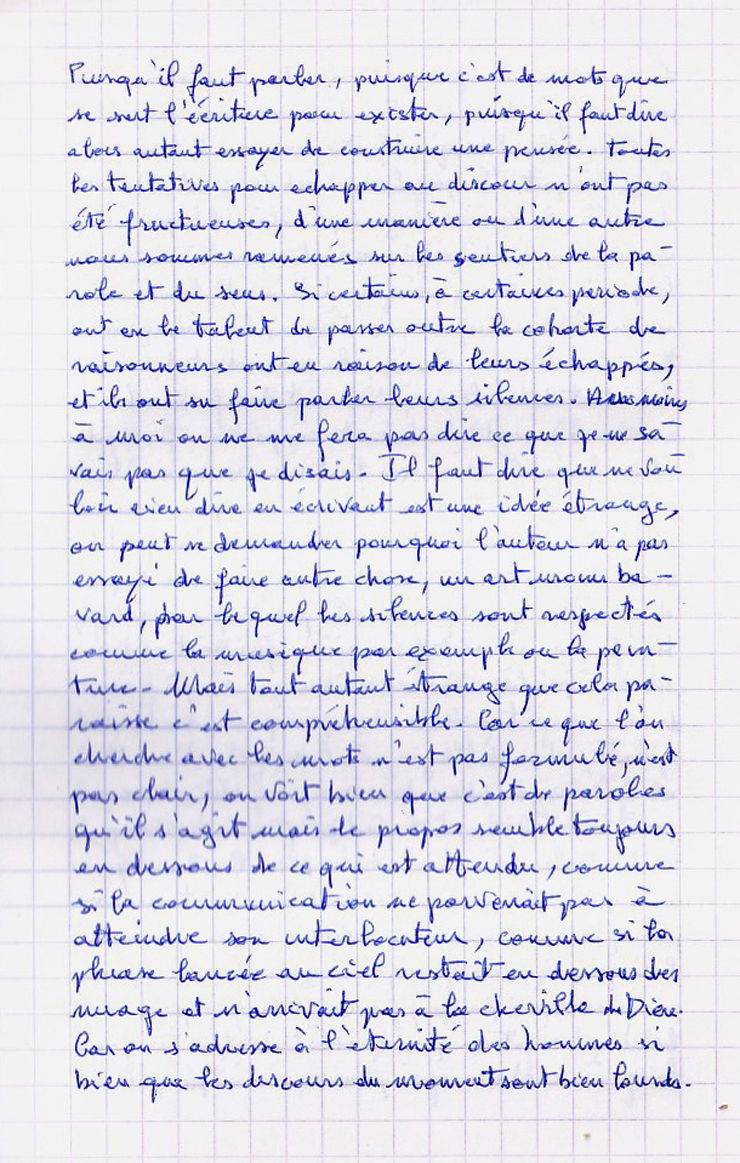 Puisqu'il faut parler, puisque c'est de mots que
se sert l'écriture pour exister, puisqu'il faut dire
alors autant essayer de construire une pensée. Toutes
les tentatives pour echapper au discour n'ont pas
été fructueuses, d'une manière ou d'une autre
nous sommes ramenés sur les sentiers de la pa-
role et du sens. Si certains, à certaines periode,
ont eu le talent de passer outre la cohorte de
raisonneurs ont eu raison de leurs échappés,
et ils ont su faire parler leurs silences. Au moins
à moi on ne me fera pas dire ce que je ne sa-
vais pas que je disais. Il faut dire que ne vou-
loir rien dire en écrivant est une idée étrange,
on peut se demander pourquoi l'auteur n'a pas
essayé de faire autre chose, un art moins ba-
vard, par lequel les silences sont respectés
comme la musique par exemple ou la pein-
ture. Mais tout autant étrange que cela pa-
raisse c'est compréhensible. Car ce que l'on
cherche avec les mots n'est pas formulé, n'est
pas clair, on voit bien que c'est de paroles
qu'il s'agit mais le propos semble toujours
en dessous de ce qui est attendu, comme
si la communication ne parvenait pas à
atteindre son interlocuteur, comme si la
phrase lancée au ciel restait en dessous des
nuage et n'arrivait pas à la cheville de Dieu.
Car on s'adresse à l'éternité des hommes si
bien que les discours du moment sont bien lourds.